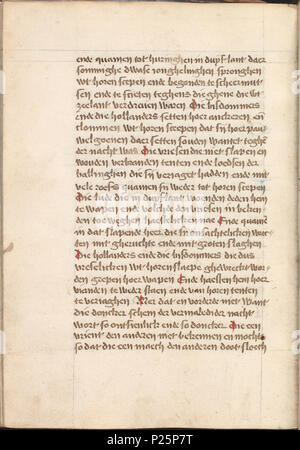 ende quamen tot huringhen in duysslant daer
sommighe dwase ionghelinghen spronghen
wt horen scepen ende begonden te schermut
sen ende te strien teghens die ghene die wt
zeelant verdreuen waren Die bisdommers
ende die hollanders setten hoer anckeren en
clommen wt horen scepen dat sij hoer pau
welgoenen daer setten souden wantet teghe
der nacht was Die vriesen die niet slapen en
wouden verbranden tenten ende loedsen der
ballinghen die sij veriaget hadden ende mit
vele roefs quamen sij weder tot horen scepen
Die lude die in duysslant woenden deden hem
te wapen ende volchde den vriesen in helm
den toe weghen heimelicken nae Ende quame
in dat slapende heer die sij onsachtelicken wect
ten mit gheruchte ende mit groten slaghen
Die hollanders ende die bisdommers die dus
vreselicken wt horen slaepe ghewrect wor
den grepen hoer wapen Ende haesten hem hoer
vianden te weder staen ende van horen tenten
te veriaghen Mer dat en vorderde niet want
die doncker schem der vermaledider nacht
wort so ontsienlick ende so doncker Die een
vrient den anderen niet bekennen en mochte
so dat die een moech den anderen doot sloech
alamy
Image ID: P25P7T
www.alamy.com